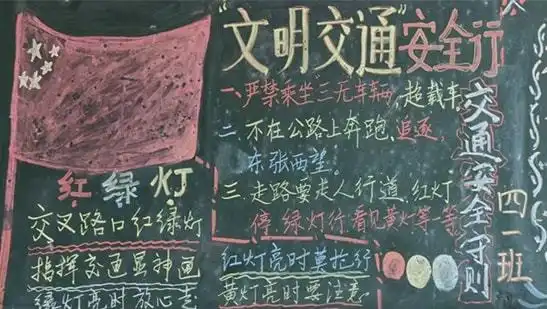 "文明交通"安全行
一、严禁乘坐"三无车辆，超载车
二、不在公路上奔跑，追逐，
东张西望。
三、走路要走人行道，红灯
停，绿灯行，看见黄灯等一等
交通安全守则
四一班
红绿灯
交叉路口红绿灯
指挥交通显神通
绿灯亮时放心走
红灯亮时莫抢行
黄灯亮时要注意